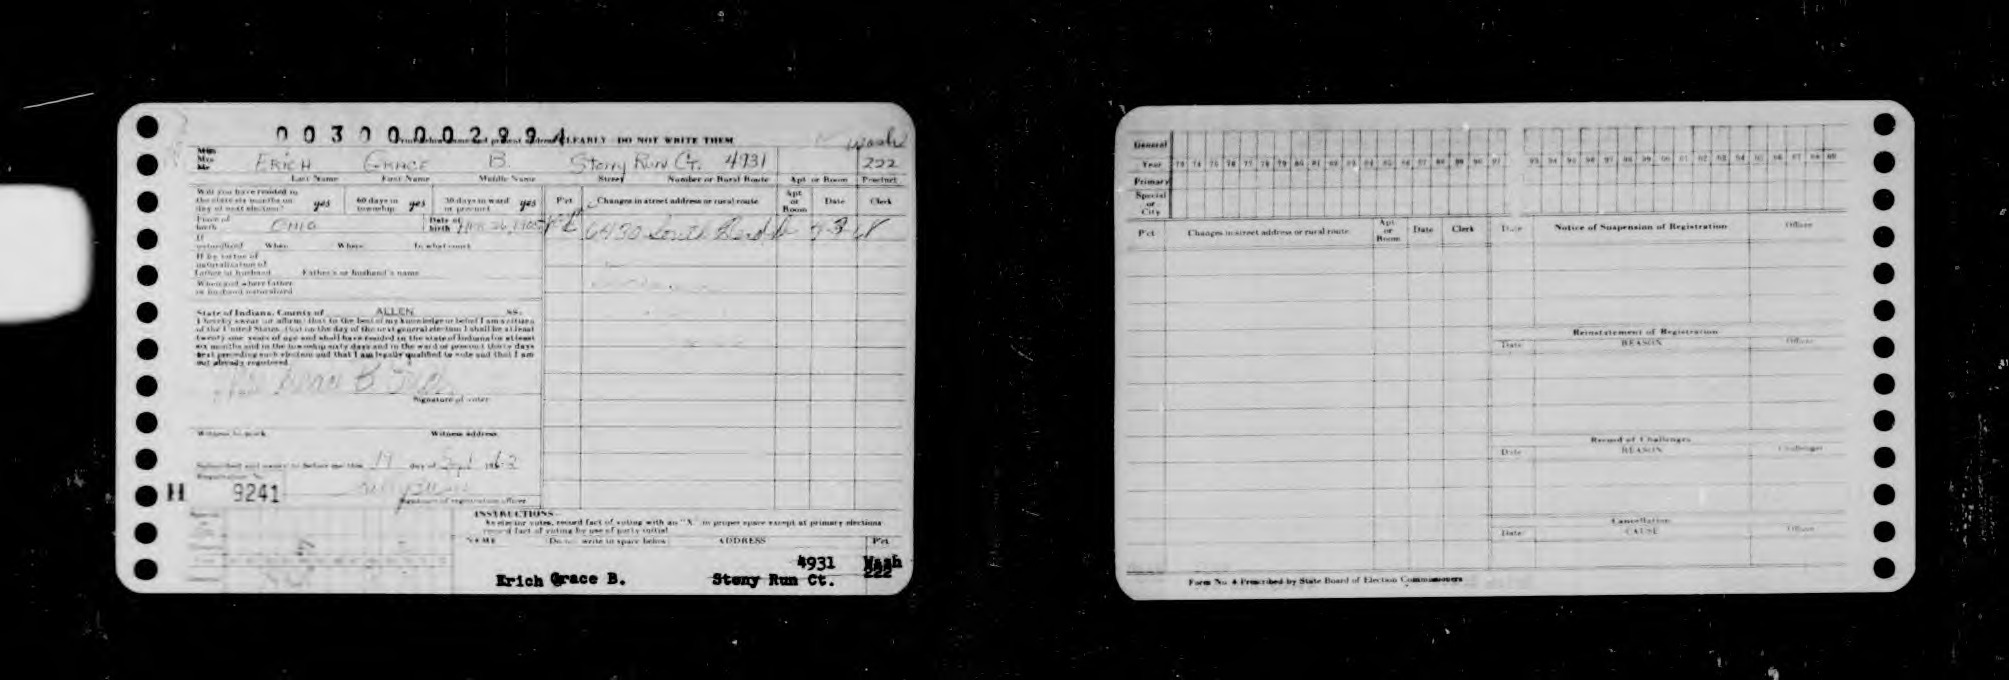 00300000299
CLEARLY - DO NOT WRITE THEM
Wash
Miss
Mrs
Mr
ERICH GRACE B. Stony Run Ct. 4931 222
Last Name First Name Middle Name Street Number or Rural Route Apt or Room Precinct
Will you have resided in
the state six months on
day of next election? yes
60 days in
township yes
30 days in ward
or precinct yes
P'ct Changes in street address or rural route Apt or Room Date Clerk
Place of
birth OHIO
Date of
birth
6430 South Bend
If
naturalized When Where In what court
If by virtue of
naturalization of
father or husband Father's or husband's name
When and where father
or husband naturalized
State of Indiana, County of ALLEN ss:
I hereby swear (or affirm) that to the best of my knowledge or belief I am a citizen
of the United States, that on the day of the next general election I shall be at least
twenty-one years of age and shall have resided in the state of Indiana for at least
six months and in the township sixty days and in the ward or precinct thirty days
next preceding such election and that I am legally qualified to vote and that I am
not already registered.
Signature of voter
Witness to mark Witness address
Subscribed and sworn to before me this 19 day of Sept 1962
Registration No.
H 9241
Signature of registration officer
INSTRUCTIONS
As elector votes, record fact of voting with an "X" in proper space except at primary elections
record fact of voting by use of party initial
NAME Do not write in space below ADDRESS P'ct
Erich Grace B. 4931 Stony Run Ct. Wash 222
General
Year 73 74 75 76 77 78 79 80 81 82 83 84 85 86 87 88 89 90 91 93 94 95 96 97 98 99 00 01 02 03 04 05 06 07 08 09
Primary
Special
or
City
P'ct Changes in street address or rural route Apt or Room Date Clerk
Date Notice of Suspension of Registration Officer
Reinstatement of Registration
Date REASON Officer
Record of Challenges
Date REASON Challenger
Cancellation
Date CAUSE Officer
Form No. 4 Prescribed by State Board of Election Commissioners